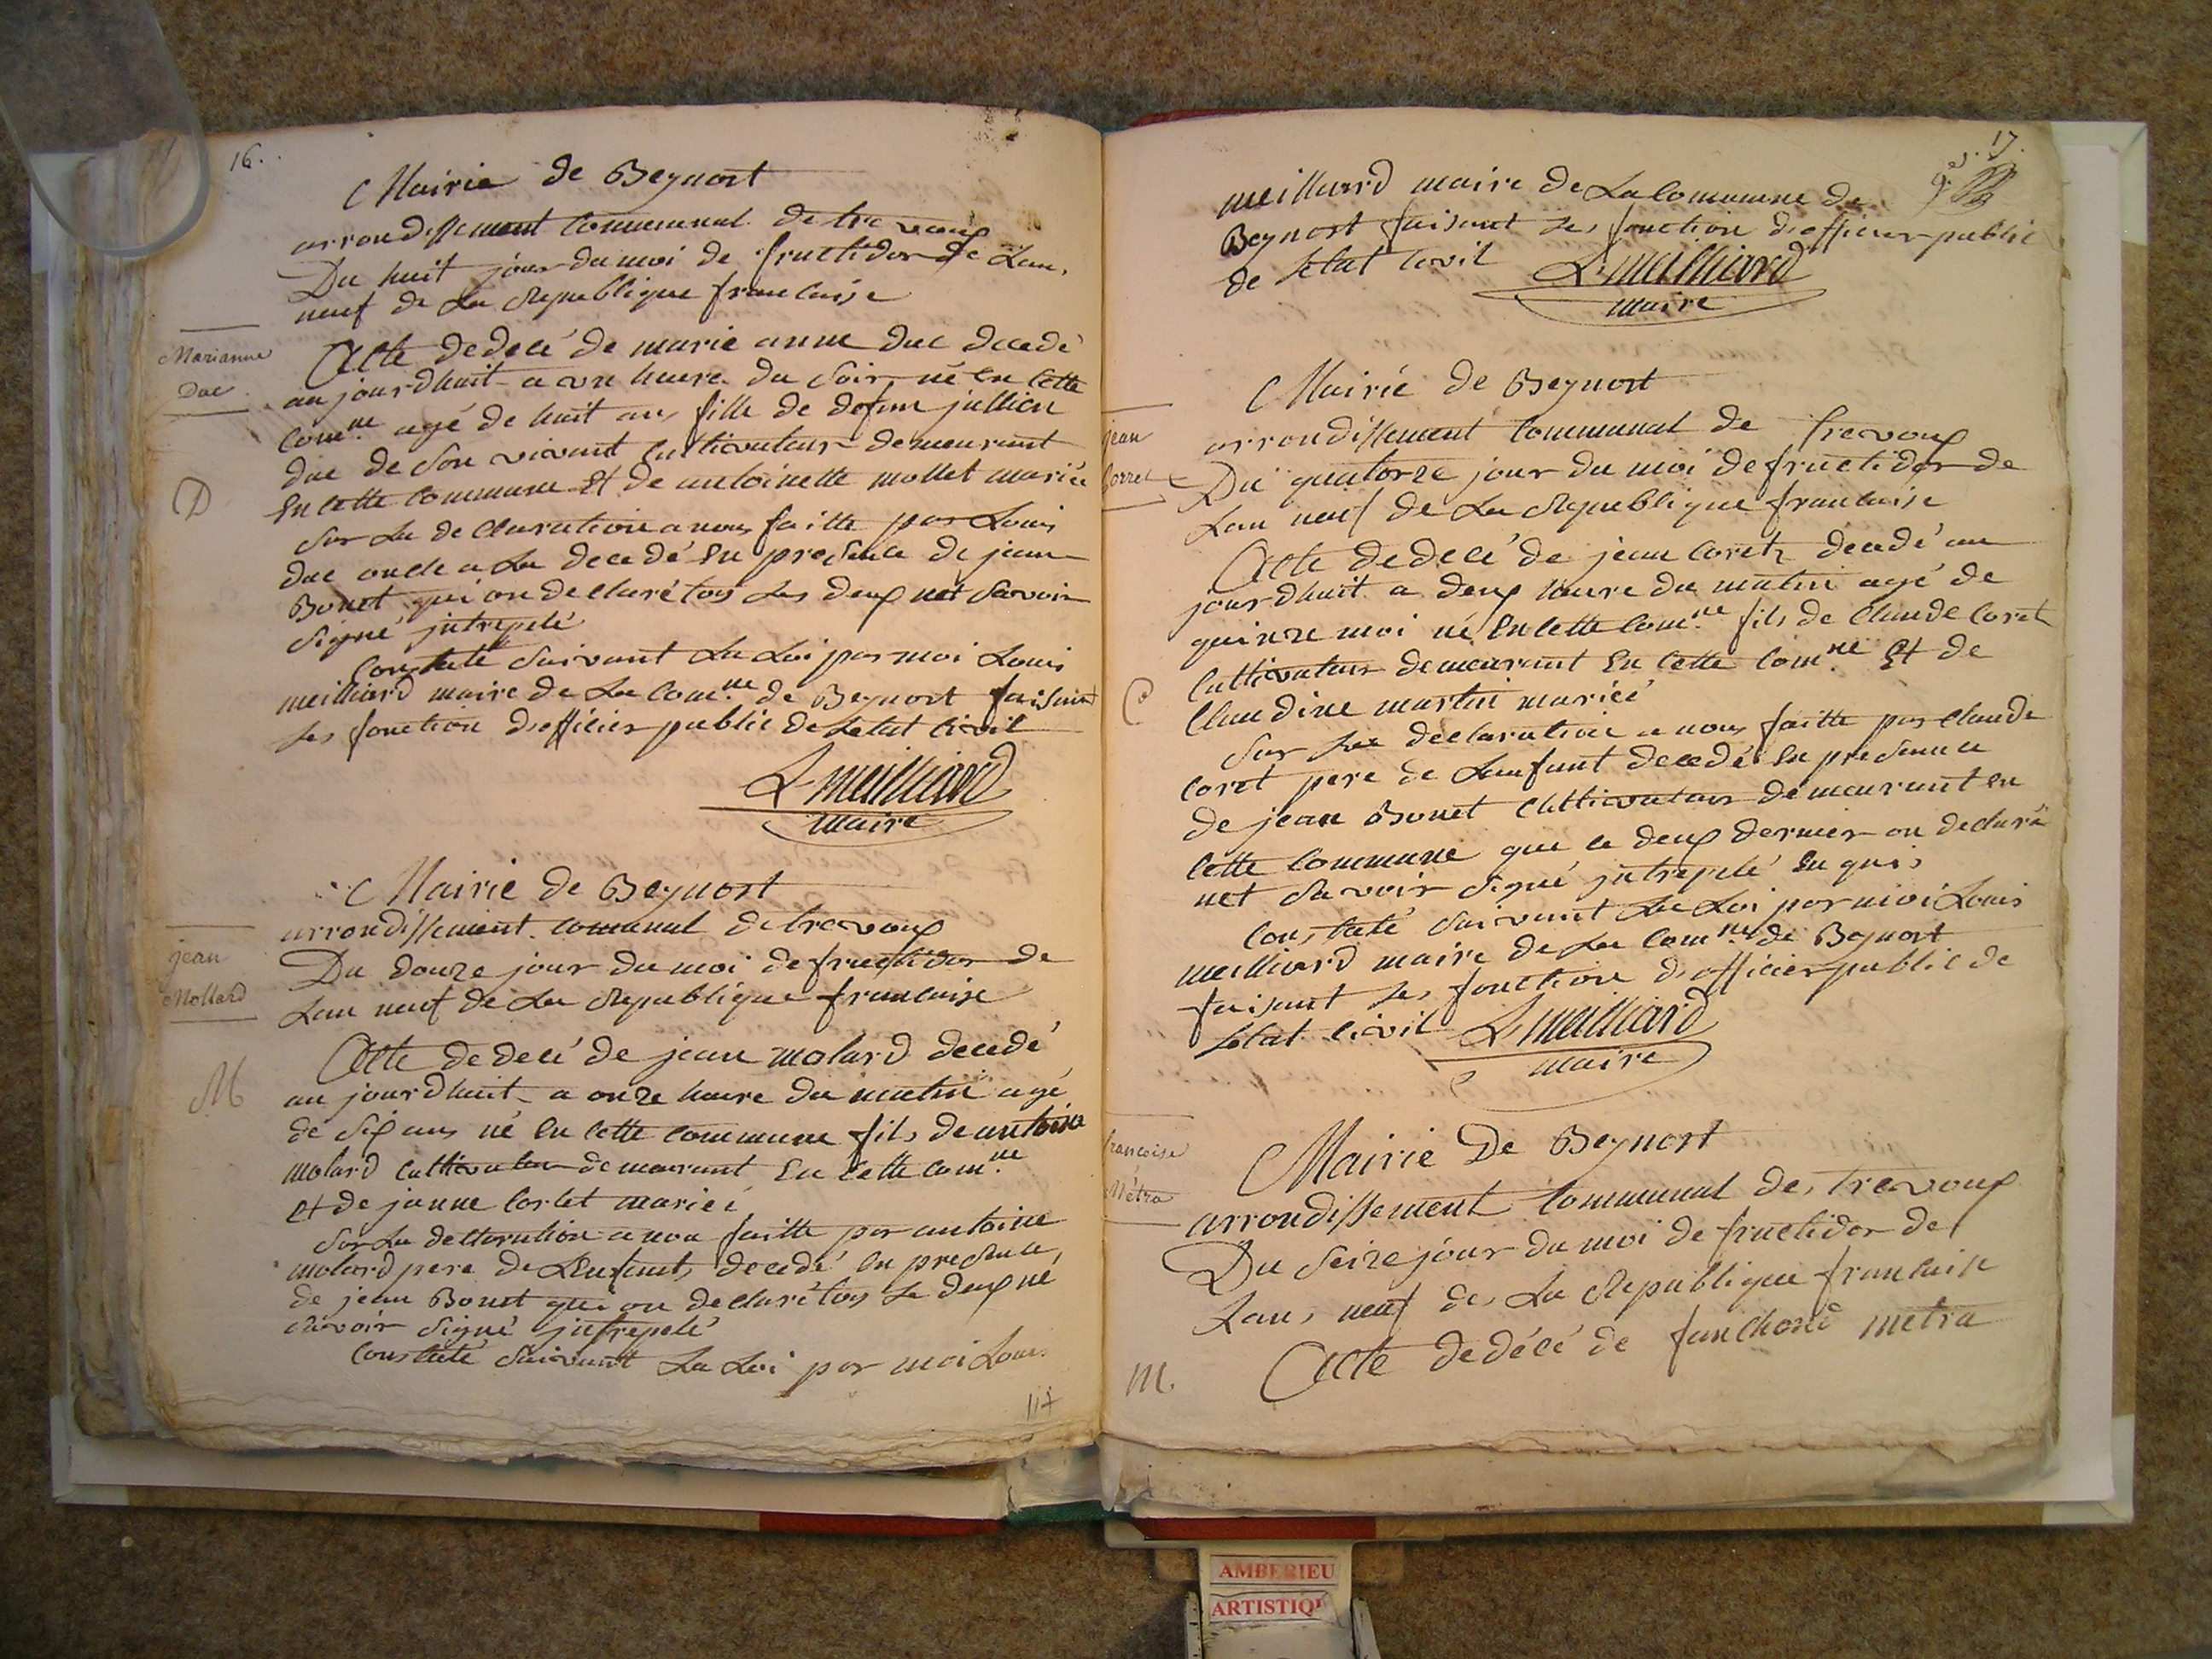 16.
Mairie de Beynost
arrondissement Communal de trevoux
Du huit jour du moi de fructidor de Lan,
neuf de La Republique francaise
Marianne
Duc
Acte dedecé de marie anne duc decedé
au jourdhuit a une heure du soir né en cette
comne agé de huit ans fille de defun jullien
duc de son vivant cultivateur demeurant
en cette commune et de antoinette mollet mariée
D
sur La declaration a nous faitte par Louis
duc oncle a La decedé en presence de jean
Bonet qui on declaré tous Les deux net savoir
signé jntrepelé
Constaté suivant La Loi par moi Louis
meilliard maire de La comne de Beynost faisant
les fonction d'officier public de Letat civil
L meilliard
maire
Mairie de Beynost
arrondissement comunal de trevoux
jean
Mollard
Du douze jour du moi de fructidor de
Lan neuf de La Republique francaise
Acte dedecé de jean molard decedé
M
au jourdhuit a onze heure du matin agé
de six ans né en cette commune fils de antoine
molard cultivateur demeurant en cette comne
et de janne corlet mariéé
sur La declaration a nou faitte par antoine
molard pere de Lenfant, decedé en presence,
de jean Bonet qui on declaré tous Le deux né
savoir signé jntrepelé
Constaté suivant La Loi par moi Louis
117
17.
meilliard maire de La Commune de
Beynost faisant les fonction d'officier public
de Letat civil
L meilliard
maire
Mairie de Beynost
jean
Corret
arrondissement Communal de trevoux
Du quatorze jour du moi de fructidor de
Lan neuf de La Republique francaise
Acte dedecé de jean Coret decedé au
jourdhuit a deux heure du matin agé de
quinze moi né en cette comne fils de Claude Coret
cultivateur demeurant en cette comne et de
C
Claudine martin mariéé
sur La declaration a nous faitte par Claude
Coret pere de Lenfant decedé en presence
de jean Bonet cultivateur demeurant en
cette commune que ce deux dernier on declaré
net savoir signé jntrepelé en quis
Constaté suivant La Loi par moi Louis
meilliard maire de La comne de Beynost
faisant les fonction d'officier public de
Letat civil
L meilliard
maire
francoise
Métra
Mairie De Beynost
arrondissement Communal de, trevoux
Du seize jour du moi de fructidor de
Lan, neuf de, La Republique francaise
M.
Acte dedécé de fanchone metra
AMBERIEU
ARTISTIQ